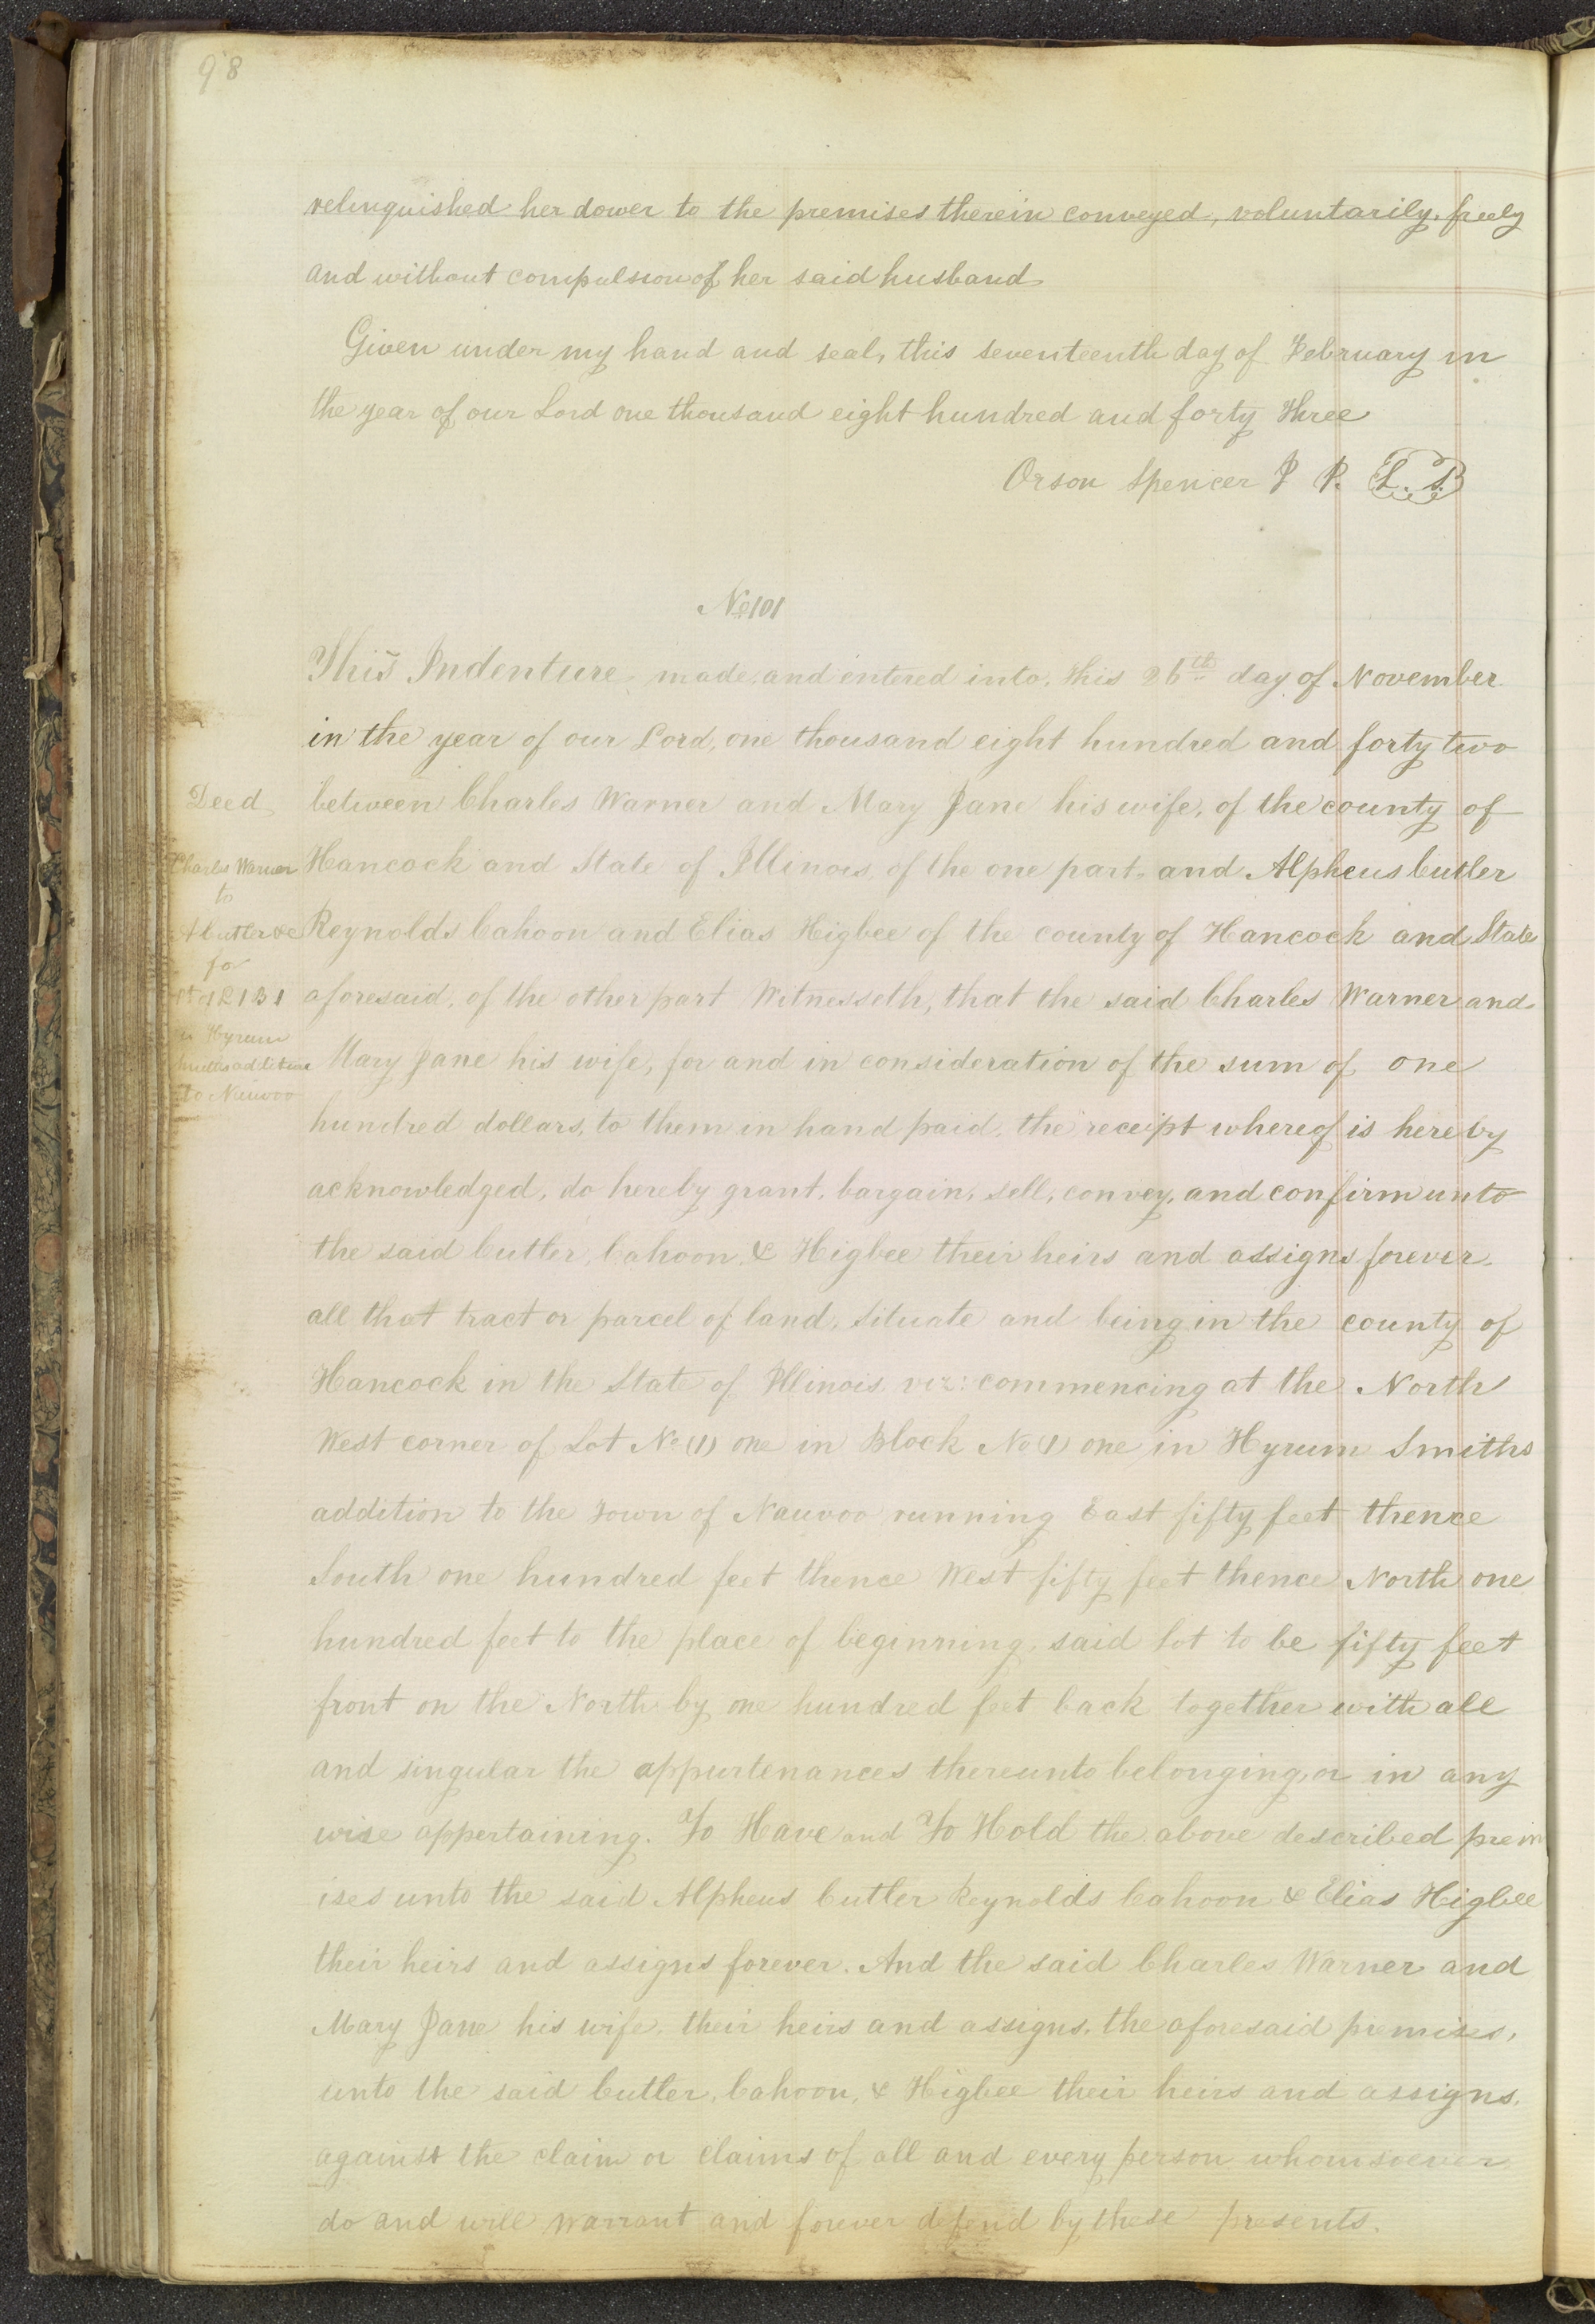 98
relinquished her dower to the premises therein conveyed, voluntarily, freely
and without compulsion of her said husband
Given under my hand and seal, this seventeenth day of February in
the year of our Lord one thousand eight hundred and forty three
Orson Spencer J P. L. S.
No 101
This Indenture, made and entered into, this 26th day of November
in the year of our Lord, one thousand eight hundred and forty two
between Charles Warner and Mary Jane his wife, of the county of
Hancock and State of Illinois, of the one part, and Alpheus Cutler
Reynolds Cahoon and Elias Higbee of the county of Hancock and State
aforesaid, of the other part Witnesseth, that the said Charles Warner and
Mary Jane his wife, for and in consideration of the sum of one
hundred dollars, to them in hand paid, the receipt whereof is hereby
acknowledged, do hereby grant, bargain, sell, convey, and confirm unto
the said Cutler, Cahoon & Higbee their heirs and assigns forever,
all that tract or parcel of land, situate and being in the county of
Hancock in the State of Illinois, viz: commencing at the North
West corner of Lot No (1) one in Block No (1) one in Hyrum Smiths
addition to the Town of Nauvoo running East fifty feet thence
South one hundred feet thence West fifty feet thence North one
hundred feet to the place of beginning, said lot to be fifty feet
front on the North by one hundred feet back together with all
and singular the appurtenances thereunto belonging, or in any
wise appertaining. To Have and To Hold the above described prem
ises unto the said Alpheus Cutler Reynolds Cahoon & Elias Higbee
their heirs and assigns forever. And the said Charles Warner and
Mary Jane his wife, their heirs and assigns, the aforesaid premises,
unto the said Cutler, Cahoon, & Higbee their heirs and assigns,
against the claim or claims of all and every person whomsoever
do and will warrant and forever defend by these presents.
Deed
Charles Warner
to
A Cutler &c
for
Pt of L 1 B 1
in Hyrum
Smiths addition
to Nauvoo